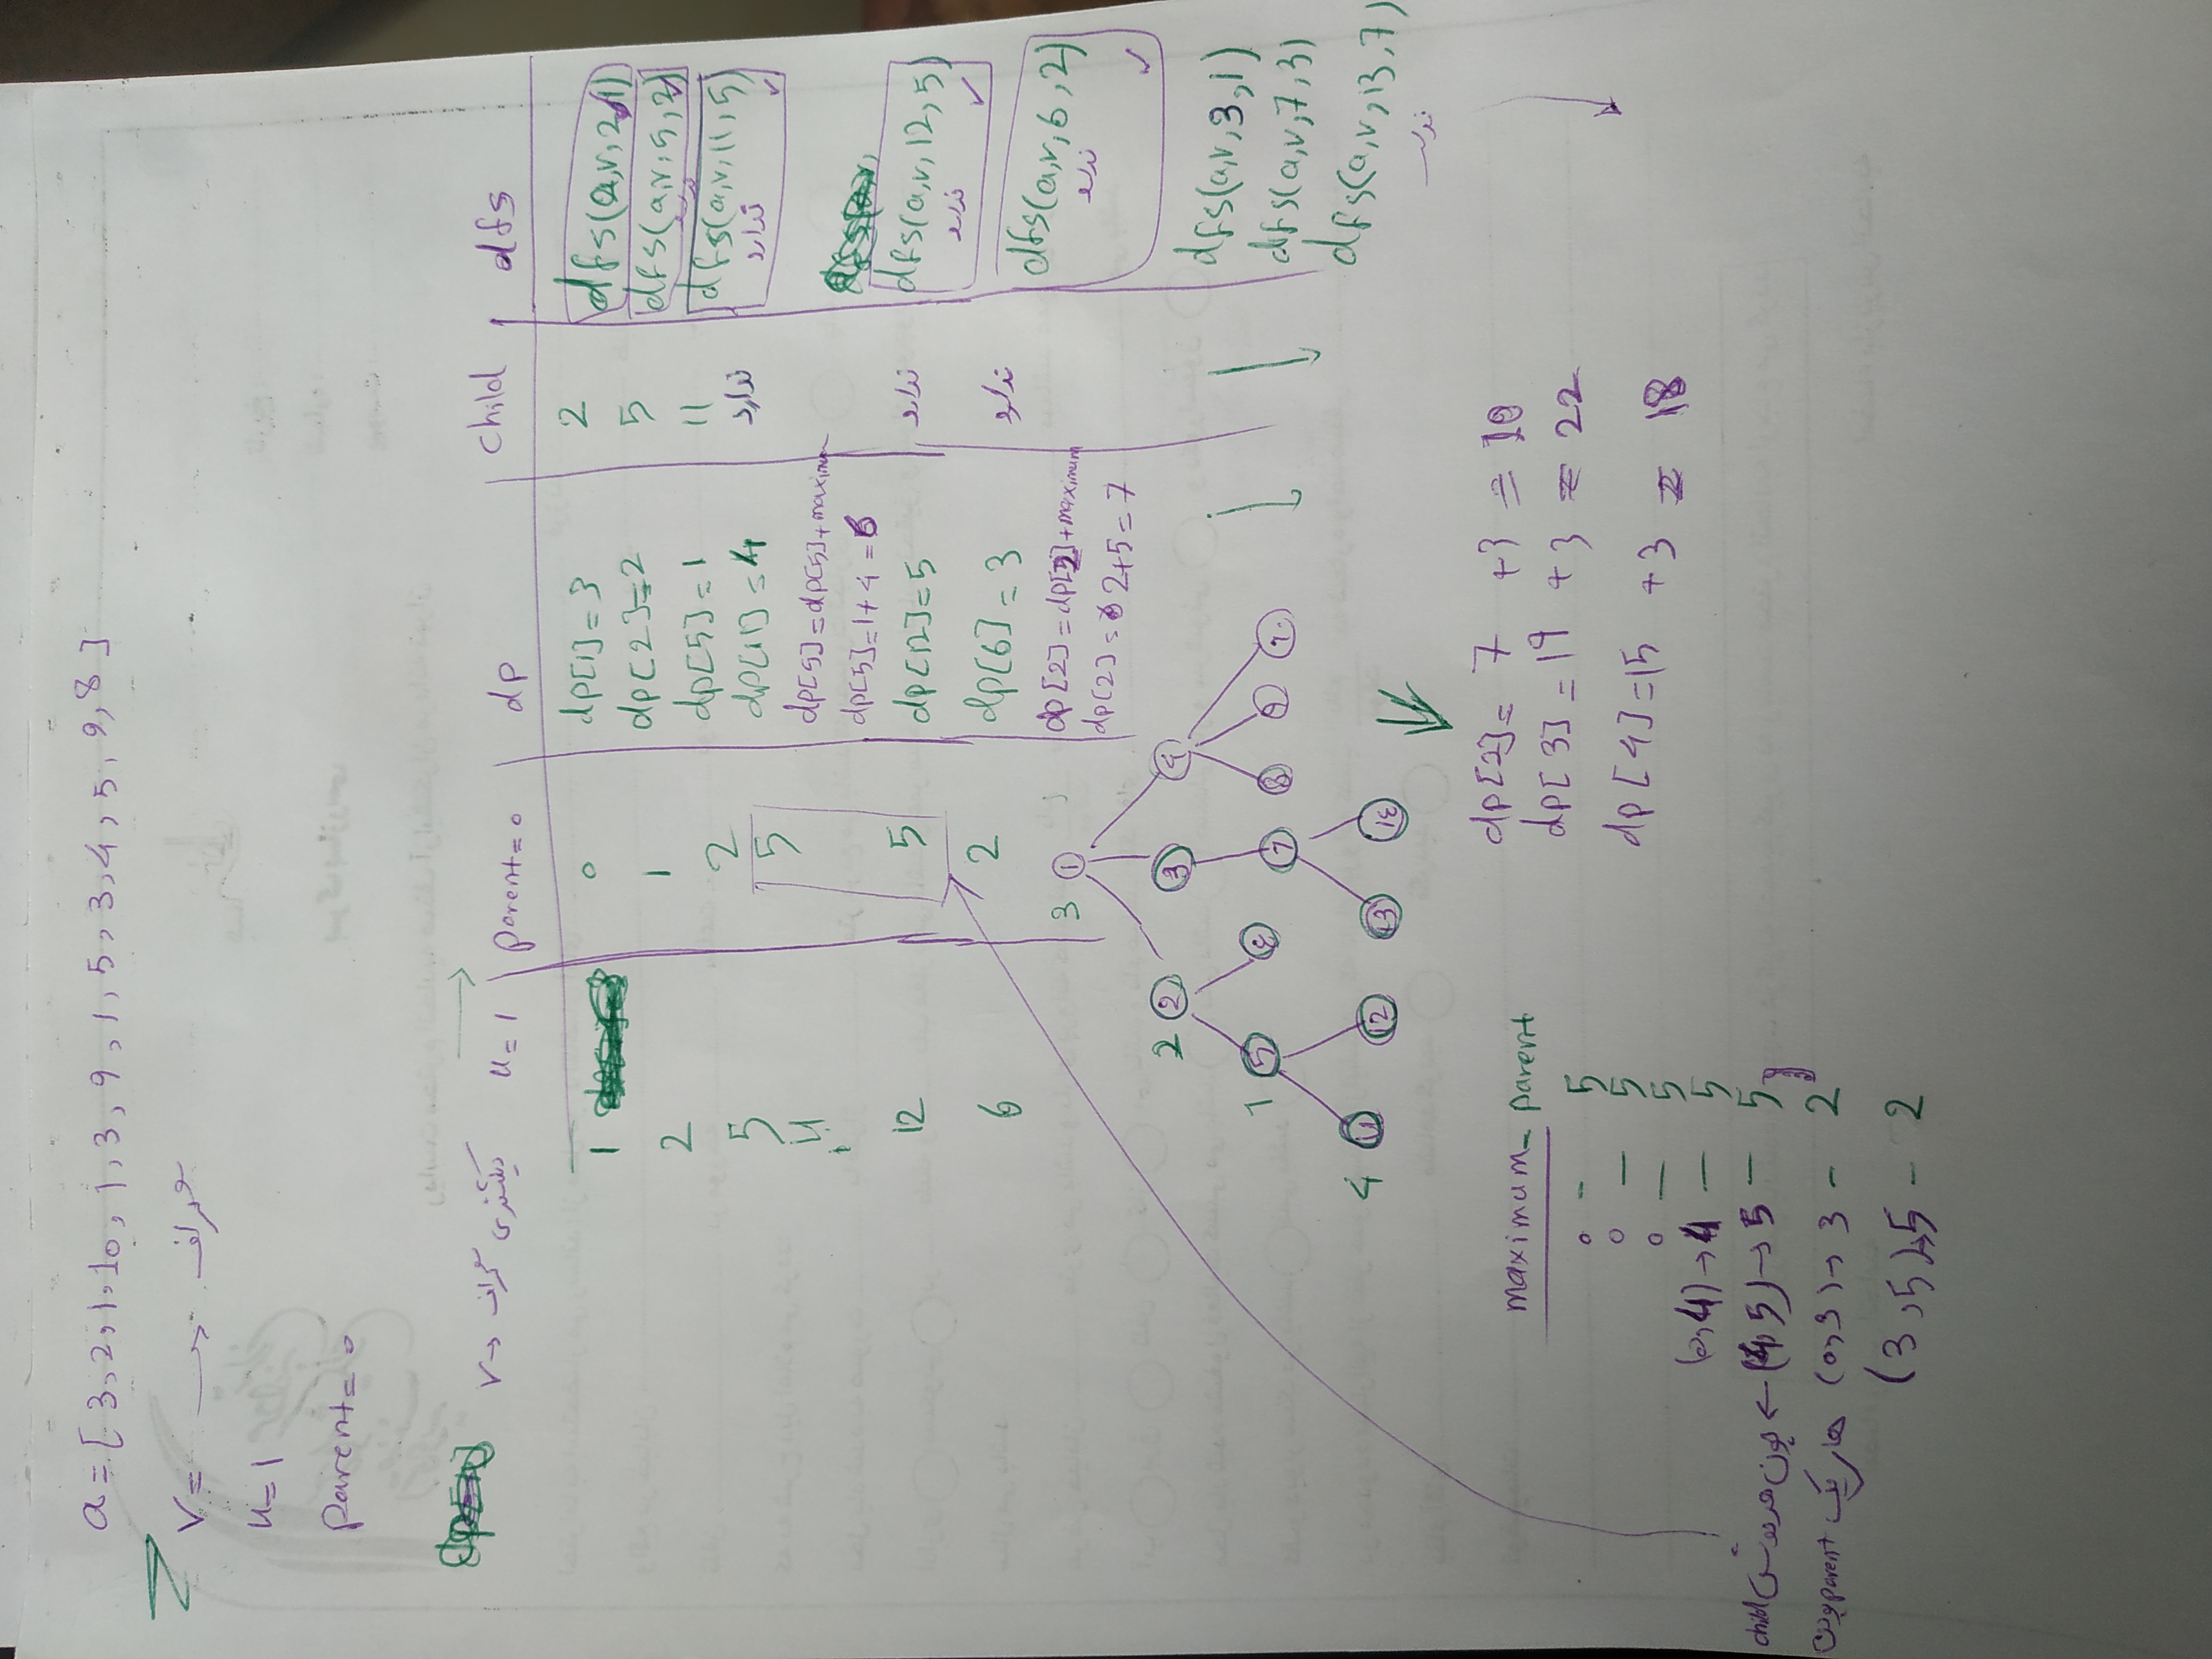 a = [ 3, 2, 1, 10, 1, 3, 9, 1, 5, 3, 4, 5, 9, 8 ]
v = → گراف
u = 1
parent = 0
v → دیکشنری گراف u = 1 parent = 0 dp child dfs
1 0 dp[1] = 3 2 dfs(a,v,2,1)
2 1 dp[2] = 2 5 dfs(a,v,5,2)
5 2 dp[5] = 1 11 dfs(a,v,11,5)
11 5 dp[11] = 4 ندارد ندارد
dp[5] = dp[5] + maximum
dp[5] = 1 + 4 = 6
12 5 dp[12] = 5 ندارد dfs(a,v,12,5)
ندارد
6 2 dp[6] = 3 ندارد dfs(a,v,6,2)
ندارد
dp[2] = dp[2] + maximum
dp[2] = 2 + 5 = 7
3 1
2 2 3 4
1 5 6 7 8 9 10
4 11 12 13 14
dfs(a,v,3,1)
dfs(a,v,7,3)
dfs(a,v,13,7)
ندارد
dp[2] = 7 + 3 = 10
dp[3] = 19 + 3 = 22
dp[4] = 15 + 3 = 18
maximum - parent
0 - 5
0 - 5
0 - 5
(0,4) → 4 - 5
child چون هردوش ← (4,5) → 5 - 5
های یک parent بودن (0,3) → 3 - 2
(3,5) → 5 - 2